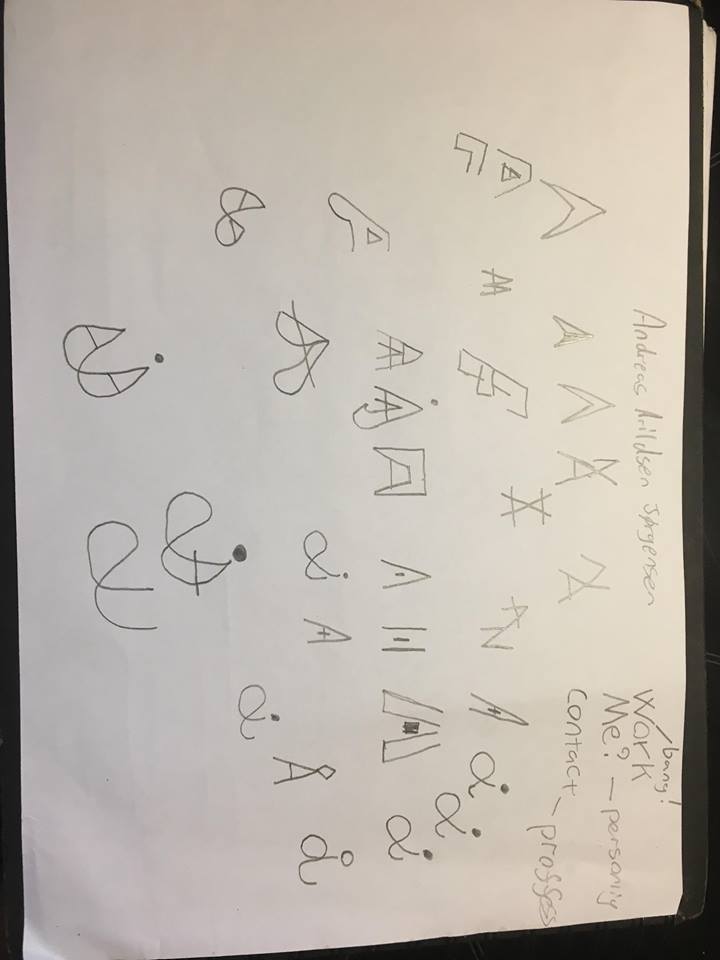 Andreas Arildsen Jørgensen
bang!
Work
Me? - personlig
Contact
- proffess